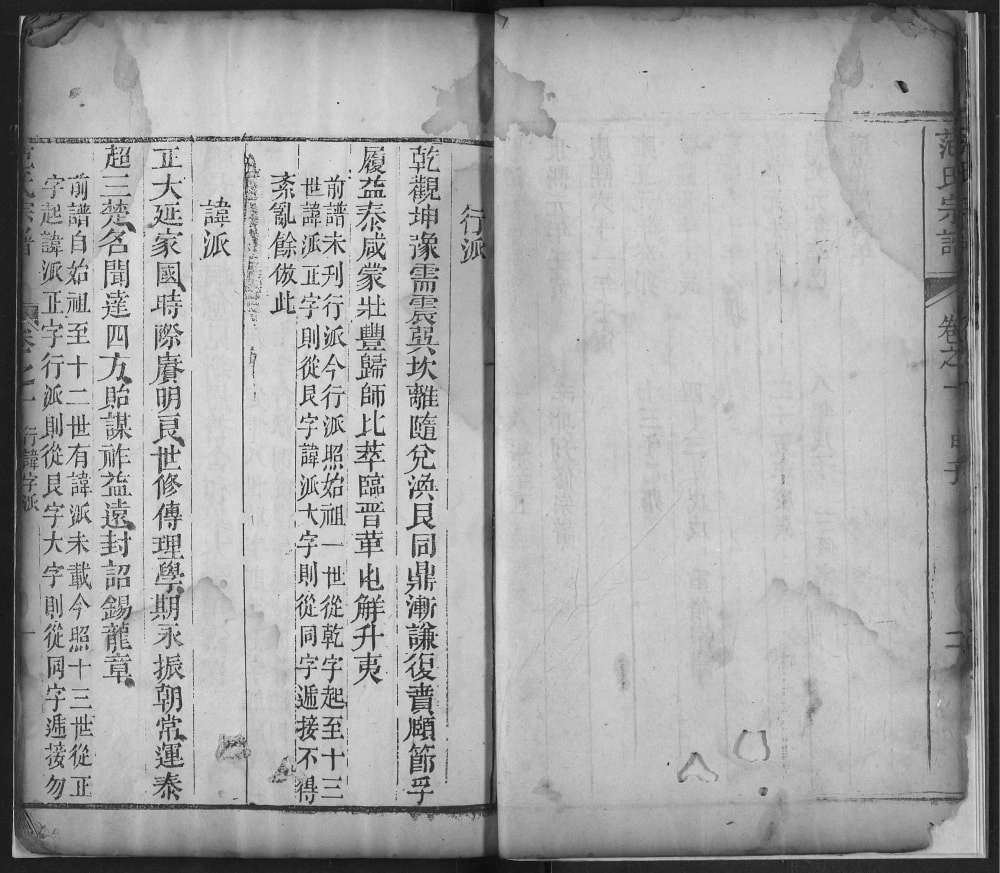 氏宗譜
卷之一
二
行派
乾觀坤豫需震巽坎離隨兌渙艮同鼎漸謙復賁頤節孚
履益泰咸蒙壯豐歸師比萃臨晋革屯解升夷
前譜未刊行派今行派照始祖一世從乾字起至十三
世諱派正字則從艮字諱派大字則從同字遞接不得
紊亂餘倣此
諱派
正大延家國時際賡明良世修傳理學期永振朝常運泰
超三楚名聞達四方貽謀祚益遠封詔錫龍章
前譜自始祖至十二世有諱派未載今照十三世從正
字起諱派正字行派則從艮字大字則從同字遞接勿
氏宗譜
卷之一
行諱字派
一